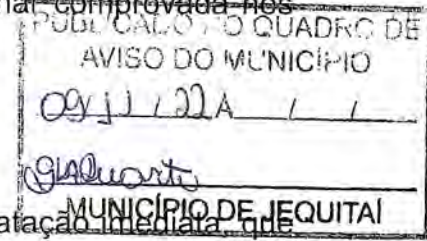 nar comprovada nos
PUBLICADO NO QUADRO DE
AVISO DO MUNICÍPIO
09/11/22 A / /
GLADuarte
MUNICÍPIO DE JEQUITAÍ
atação imediata que